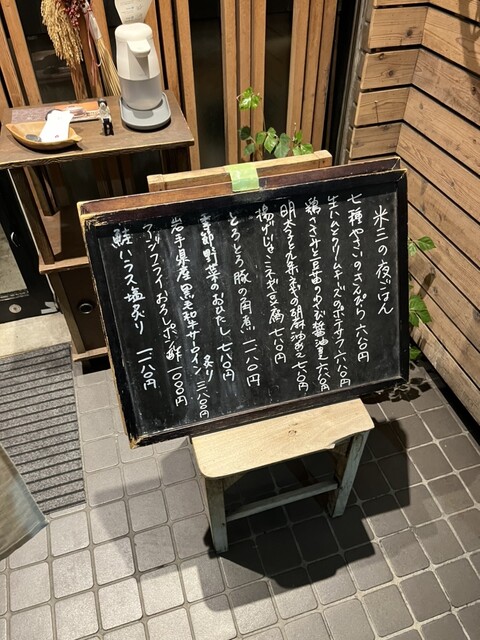 米三の夜ごはん
七種やさいのきんぴら 六八〇円
生ハムとクリームチーズのポテサラ 六八〇円
鶏ささみと豆苗のわさび醤油 六八〇円
明太子と九条ネギの胡麻油あえ 七八〇円
揚げじゃこネギ豆腐 七八〇円
とろとろ豚の角煮 一二八〇円
季節野菜のおひたし 七八〇円
岩手県産黒毛和牛サーロイン炙り 三八〇〇円
アジフライおろしポン酢 一〇〇〇円
鮭ハラス塩炙り 一二八〇円